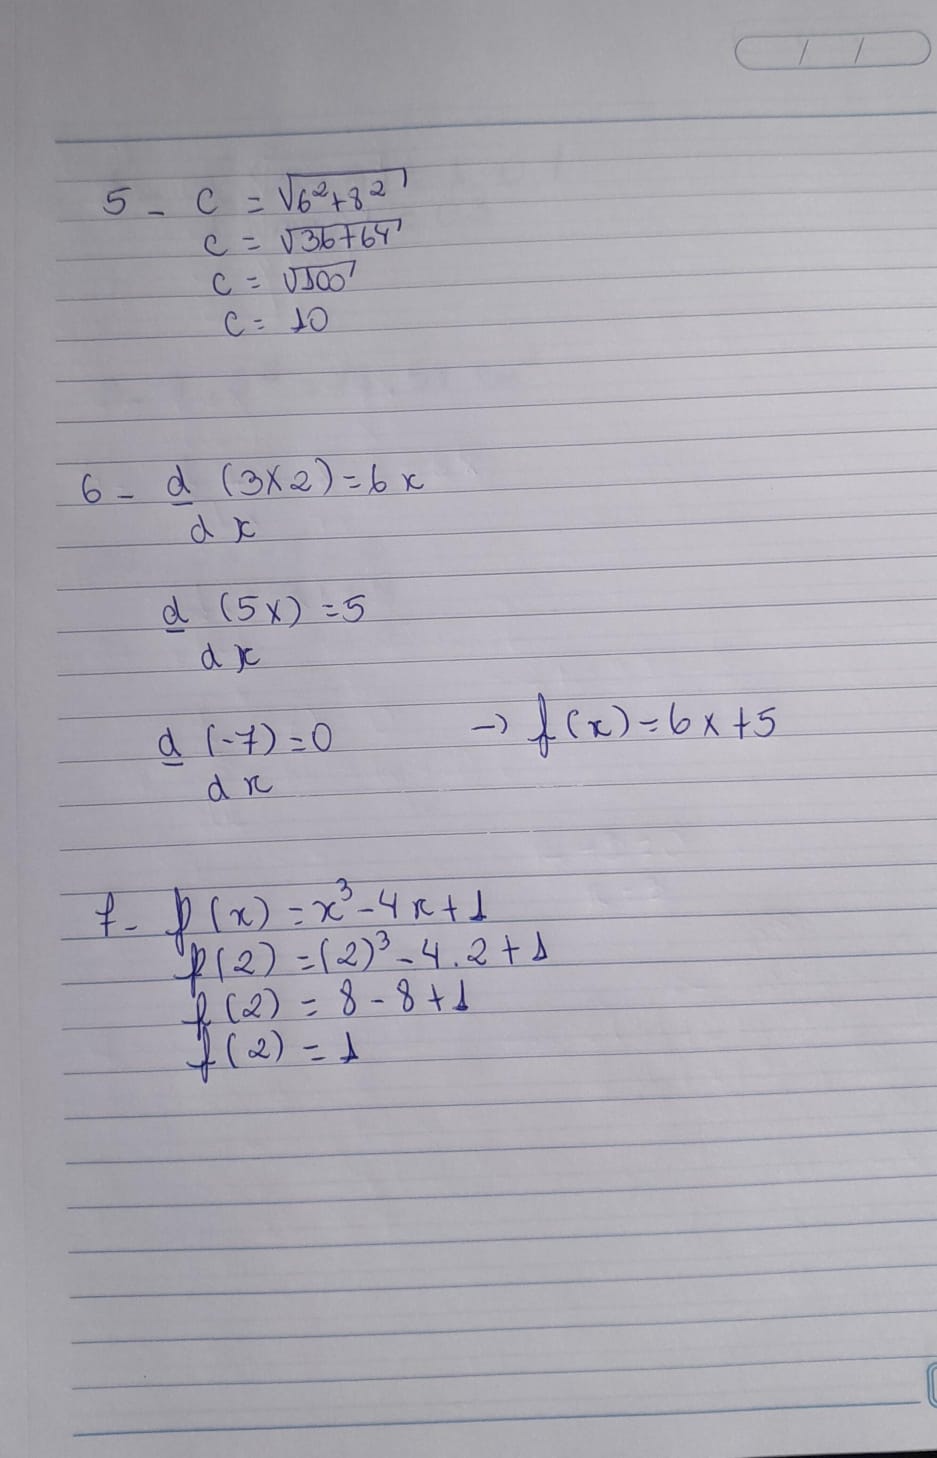 5 - C = √6²+8²
C = √36+64
C = √100
C = 10
6 - d (3x2) = 6x
dx
d (5x) = 5
dx
d (-7) = 0 → f(x) = 6x+5
dx
7 - f(x) = x³-4x+1
f(2) = (2)³-4.2+1
f(2) = 8-8+1
f(2) = 1